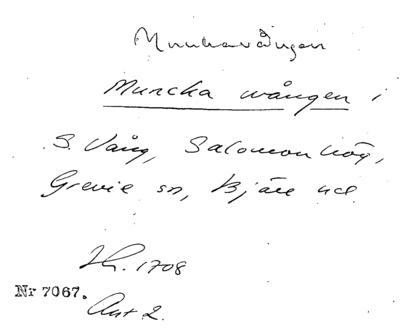 Munkavången
Muncka wången i
S. Vång, Salomonhög,
Grevie sn, Bjäre hd.
Jb. 1708
Nr 7067.
Ant 2.